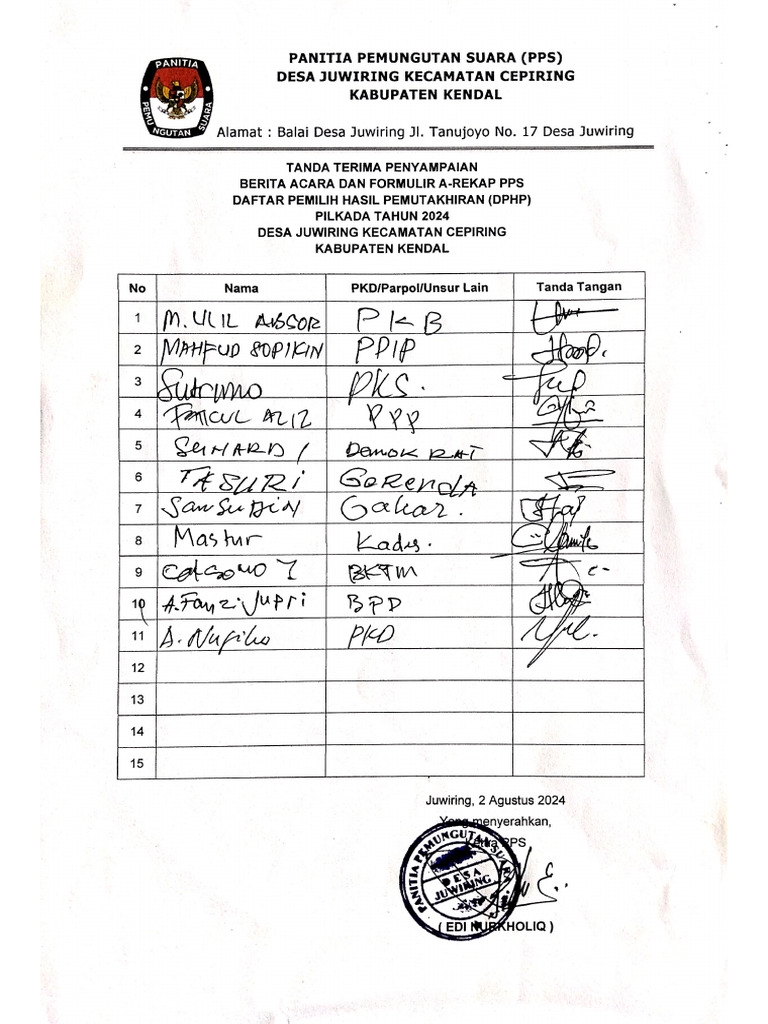 PANITIA PEMUNGUTAN SUARA (PPS)
DESA JUWIRING KECAMATAN CEPIRING
KABUPATEN KENDAL
PANITIA
PEMU NGUTAN SUARA
Alamat : Balai Desa Juwiring Jl. Tanujoyo No. 17 Desa Juwiring
TANDA TERIMA PENYAMPAIAN
BERITA ACARA DAN FORMULIR A-REKAP PPS
DAFTAR PEMILIH HASIL PEMUTAKHIRAN (DPHP)
PILKADA TAHUN 2024
DESA JUWIRING KECAMATAN CEPIRING
KABUPATEN KENDAL
No Nama PKD/Parpol/Unsur Lain Tanda Tangan
1 M. ULIL ABSOR PKB
2 MAHFUD SOPIKIN PDIP
3 Sutrisno PKS.
4 AZIZ PPP
5 SUHARDI DEMOKRAT
6 TASURI GERENDA
7 SAMSUDIN Golkar.
8 Mastur Kadus.
9 BKTM
10 A. Fauzi Jupri BPD
11 A. Nugiho PKD
12
13
14
15
Juwiring, 2 Agustus 2024
Yang menyerahkan,
Ketua PPS
PANITIA PEMUNGUTAN SUARA
DESA
JUWIRING
( EDI NURKHOLIQ )